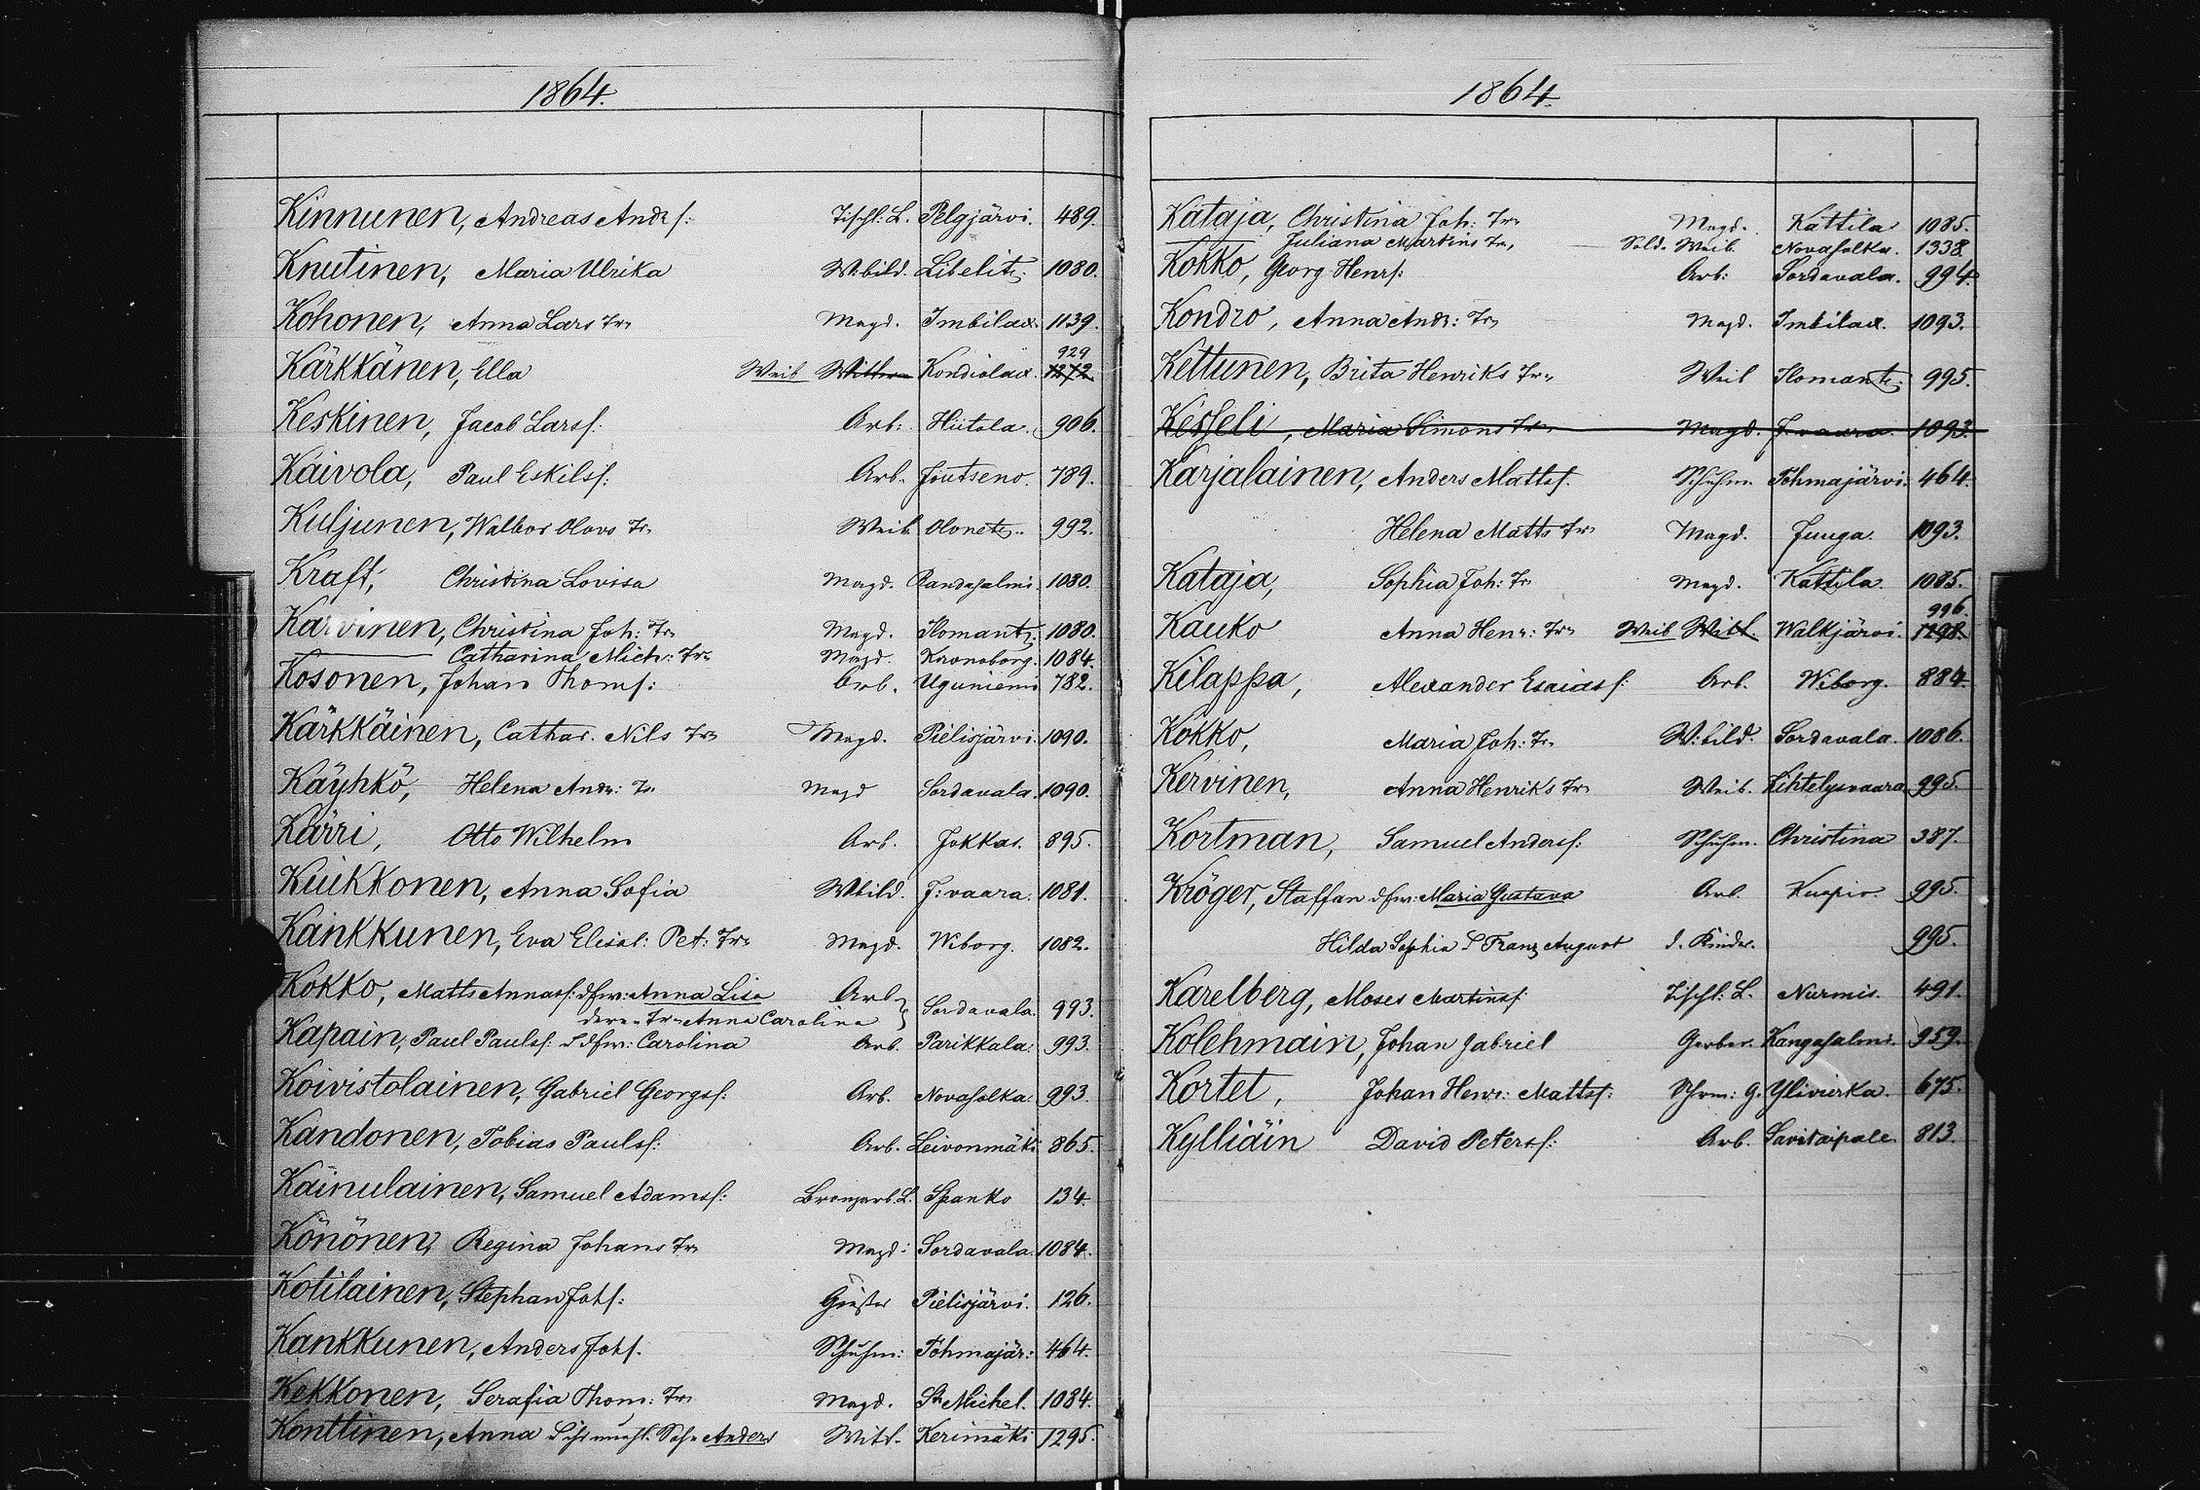 1864.
Kinnunen, Andreas Andr.s: Tischl: L. Pelgjärvi. 489.
Knutinen, Maria Ulrika Wbild. Libelitz. 1080.
Kohonen, Anna Lars Tr. Magd. Imbilax. 1139.
929
Kärkkänen, Ella Weib Kondiolax. 1272
Keskinen, Jacob Larss. Arb: Hiitola. 906.
Kaivola, Paul Eskilss: Arb. Joutseno. 789.
Kuljunen, Walbor Olovs Tr. Weib Olonetz. 992.
Kraft, Christina Lovisa Magd. Randasalmi. 1080.
Karvinen, Christina Joh: Tr. Magd. Ilomantz. 1080.
Catharina Mich: Tr. Magd. Kronoborg. 1084.
Kosonen, Johan Thoms: Arb. Uguniemi 782.
Kärkkäinen, Cathar. Nils Tr. Magd. Pielisjärvi. 1090.
Käyhkö, Helena Andr: Tr. Magd Sordavala. 1090.
Kärri, Otto Wilhelm Arb. Jokkas. 895.
Kuikkonen, Anna Sofia Wbild. J:vaara. 1081.
Kankkunen, Eva Elisab: Pet: Tr. Magd. Wiborg. 1082.
Kokko, Matts Annass: dfw: Anna Lisa Arb. Sordavala. 993.
deren Tr. Anna Carolina
Kapain, Paul Paulss: dfw: Carolina Arb. Parikkala. 993.
Koivistolainen, Gabriel Georgss: Arb. Novasolka. 993.
Kandonen, Tobias Paulss: Arb. Leivonmäki 865.
Käinulainen, Samuel Adamss: Bronzarb. L. Spanko 134.
Könönen, Regina Johans Tr. Magd: Sordavala. 1084.
Kotilainen, Stephan Johs: Gießer Pielisjärvi. 126.
Kankkunen, Anders Johs. Schuhm: Tohmajär: 464.
Kekkonen, Serafia Thom: Tr. Magd. St. Michel. 1084.
Konttinen, Anna Sohn Anders Witt. Kerimäki 1295.
1864.
Kataja, Christina Joh: Tr. Magd. Kattila 1085.
Juliana Martins Tr. Sold. Weib. Novasolka. 1338.
Kokko, Georg Henrs: Arb: Sordavala. 994.
Kondro, Anna Andr: Tr. Magd. Imbilax. 1093.
Kettunen, Brita Henriks Tr. Weib Ilomantz. 995.
Kesseli, Maria Simons Tr. Magd. J.vaara. 1093.
Karjalainen, Anders Mattss. Schuhm. Tohmajärvi. 464.
Helena Matts Tr. Magd. Juuga. 1093.
Kataja, Sophia Joh: Tr. Magd. Kattila. 1085.
996.
Kauko Anna Henr: Tr. Weib Witt. Walkjärvi. 1298.
Kilappa, Alexander Esaiass: Arb. Wiborg. 884.
Kokko, Maria Joh: Tr. W:bild. Sordavala. 1086.
Kervinen, Anna Henriks Tr. Weib. Kihtelysvaara 995.
Kortman, Samuel Anderss: Schuhm. Christina 387.
Kröger, Staffan dfw: Maria Gustava Arb. Kuopio. 995.
Hilda Sophia Franz August d. Kinder. 995.
Karelberg, Moses Martinss Tischl: L. Nurmis. 491.
Kolehmain, Johan Gabriel Gerber. Kangasalmi. 959.
Kortet, Johan Henr: Mattss: Schrm: G. Ylivierka. 675.
Kylliäin David Peterss: Arb. Savitaipale. 813.